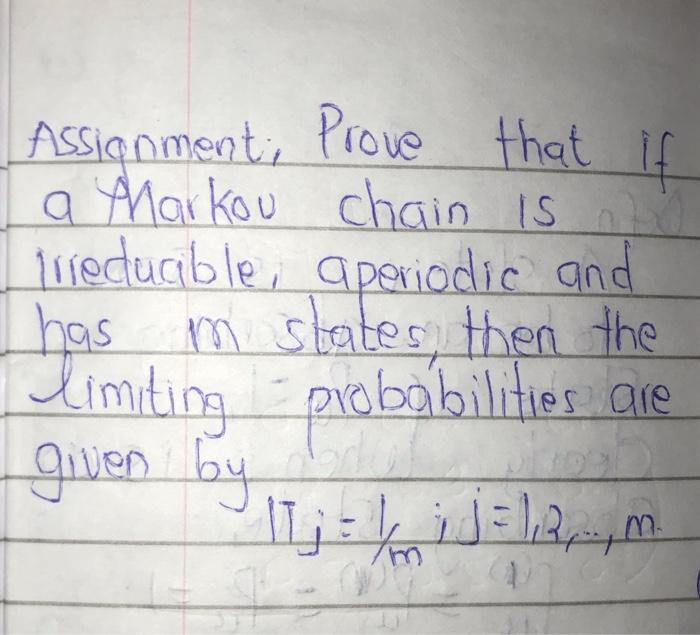 Assignment:, Prove that if
a Markov chain is
irreducible, aperiodic and
has m states, then the
limiting probabilities are
given by
Πj = 1/m ; j = 1,2,..., m.